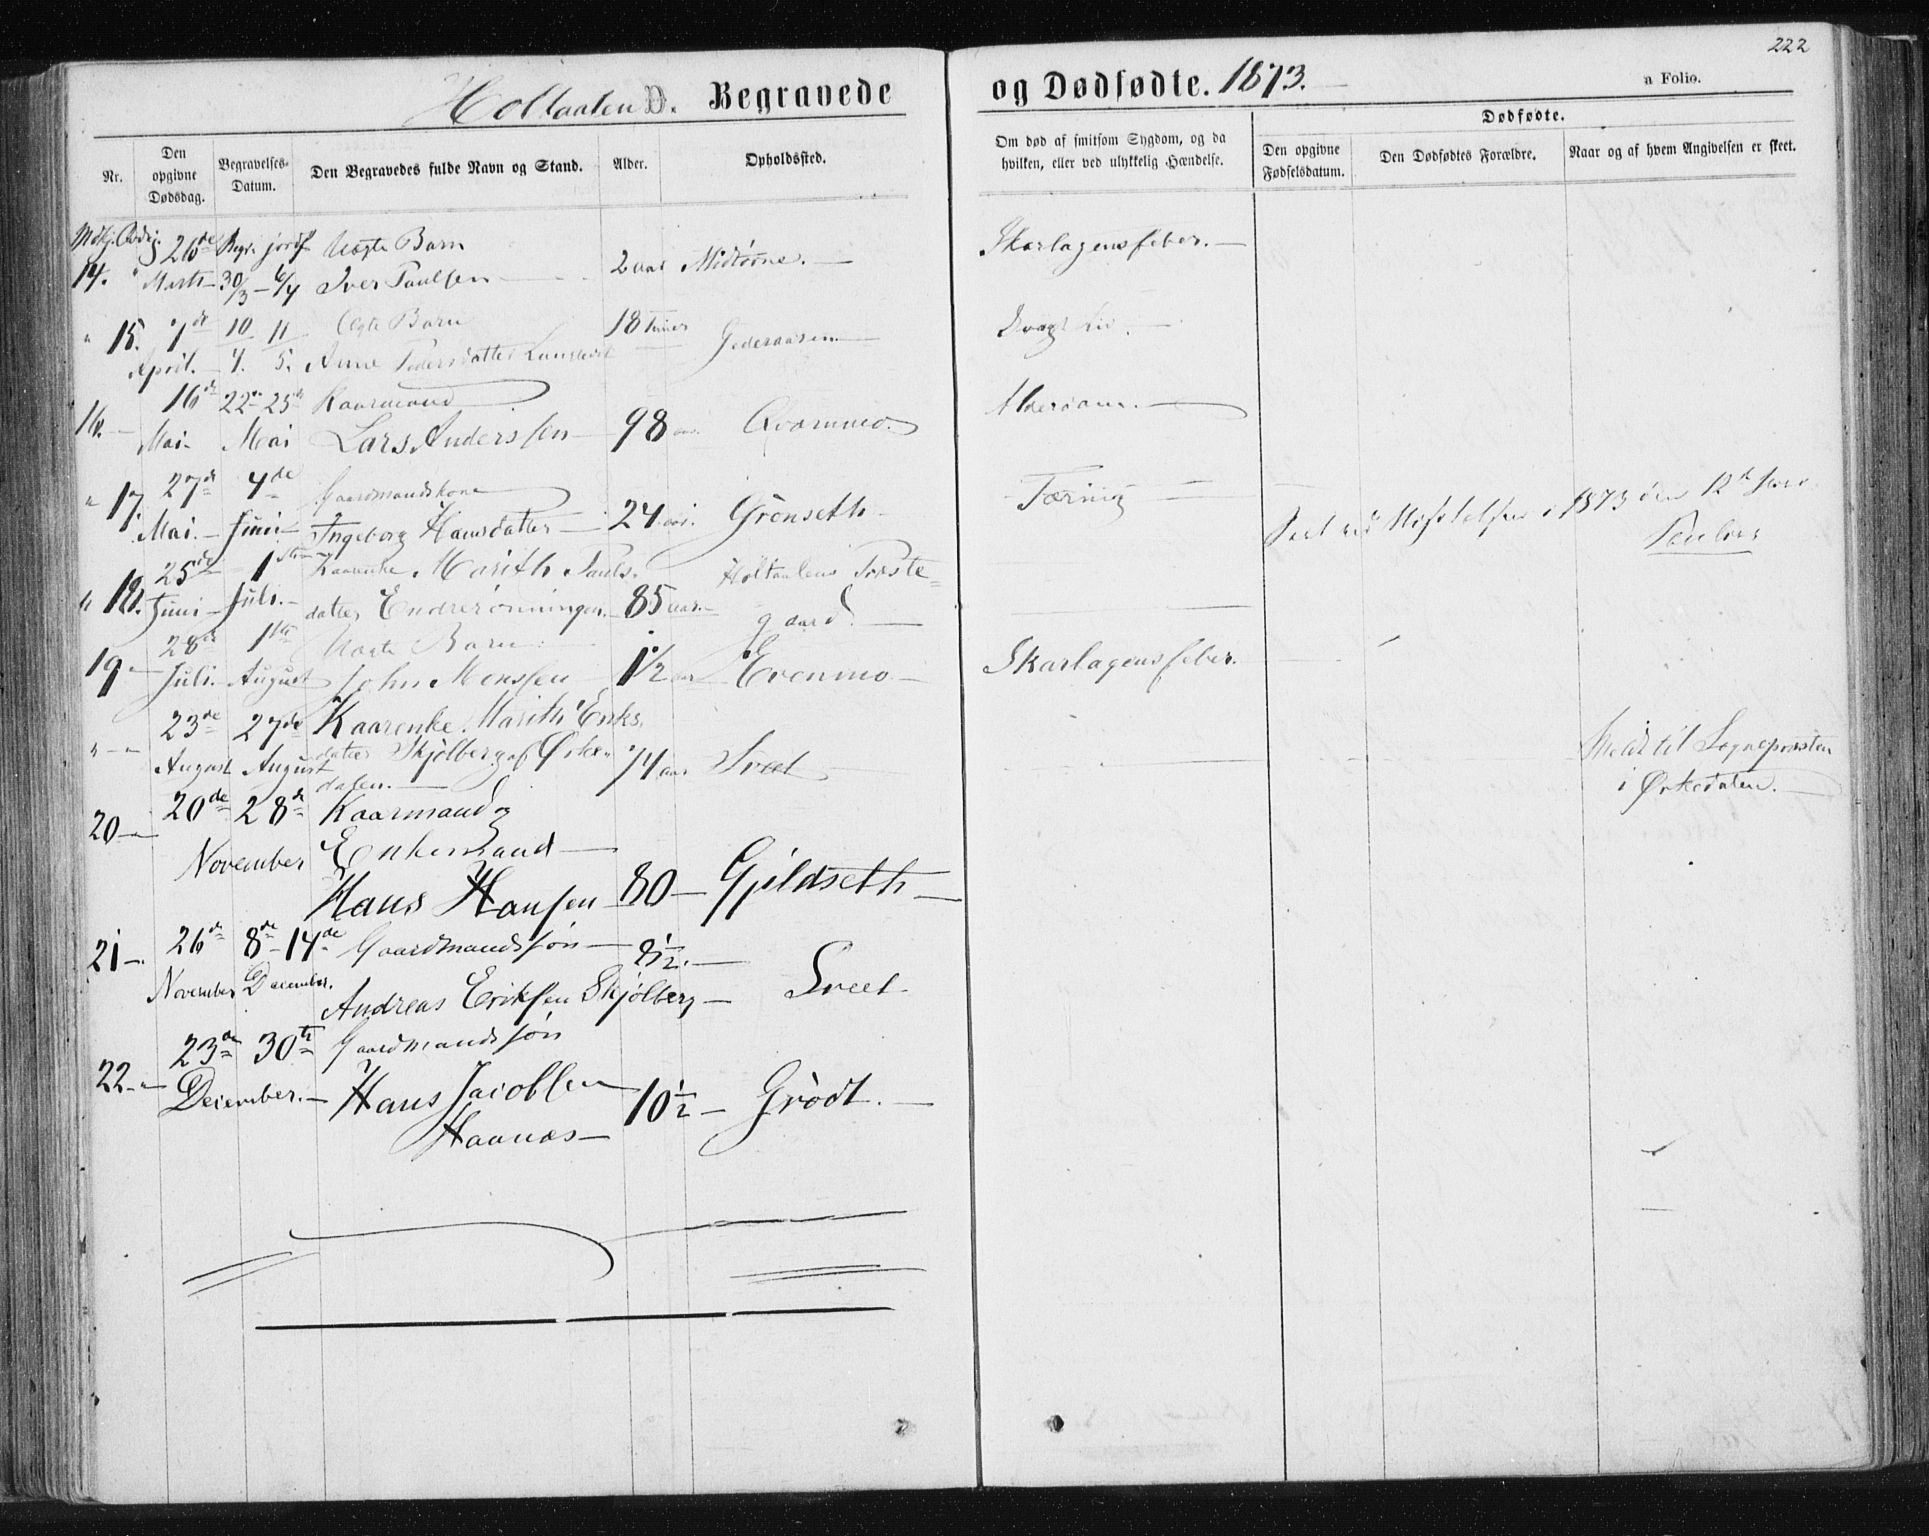 222
Holtaalen D. Begravede og Dødfødte. 1873.
a Folio.
Nr.
Den opgivne Dødsdag.
Begravelses-Datum.
Den Begravedes fulde Navn og Stand.
Alder.
Opholdssted.
Om død af smitsom Sygdom, og da hvilken, eller ved ulykkelig Hændelse.
Dødfødte.
Den opgivne Fødselsdatum.
Den Dødfødtes Forældre.
Naar og af hvem Angivelsen er skeet.
26de Begr. jordf. Uægte Barn Skarlagensfeber.
14. Marts 30/3 - 6/4 Iver Paulsen 2 aar
15. 7de 10 11 Ægte Barn 18 Timer
April. 4. 5. Anne Pedersdatter
16de 22de 25de Kaarmand
16. Mai Mai Lars Anderssen 98 aar Qvammo.
27de 4de Gaardmandskone Tæring
17. Mai Juni Ingeborg Hansdatter 24 aar. Grönseth
1873 den 12te
25de 1ste Kaarenke Marith Pauls- Holtaalens Præste-
18. Juni Juli. datter Endrerönningen. 85 aar. gaard.
28de 1ste Uægte Barn
19 Juli. August John Monssen 1 1/2 aar Evenmo Skarlagensfeber.
23de 27de Kaarenke Marith Eriks-
August August datter Skjölberg af Örke- 74 aar Svet
dalen.
Meldt til Sognepræsten
i Örkedalen.
20 20de 28de Kaarmand og
November Enkemand
Hans Hansen 80 Gjildseth
21 26de 8de - 14de Gaardmandssön 8 1/2.
November December. Andreas Eriksen Skjölberg Svet
23de 30te Gaardmandssön
22 December. Hans Jacobsen 10 1/2 Grödt.
Haanæs